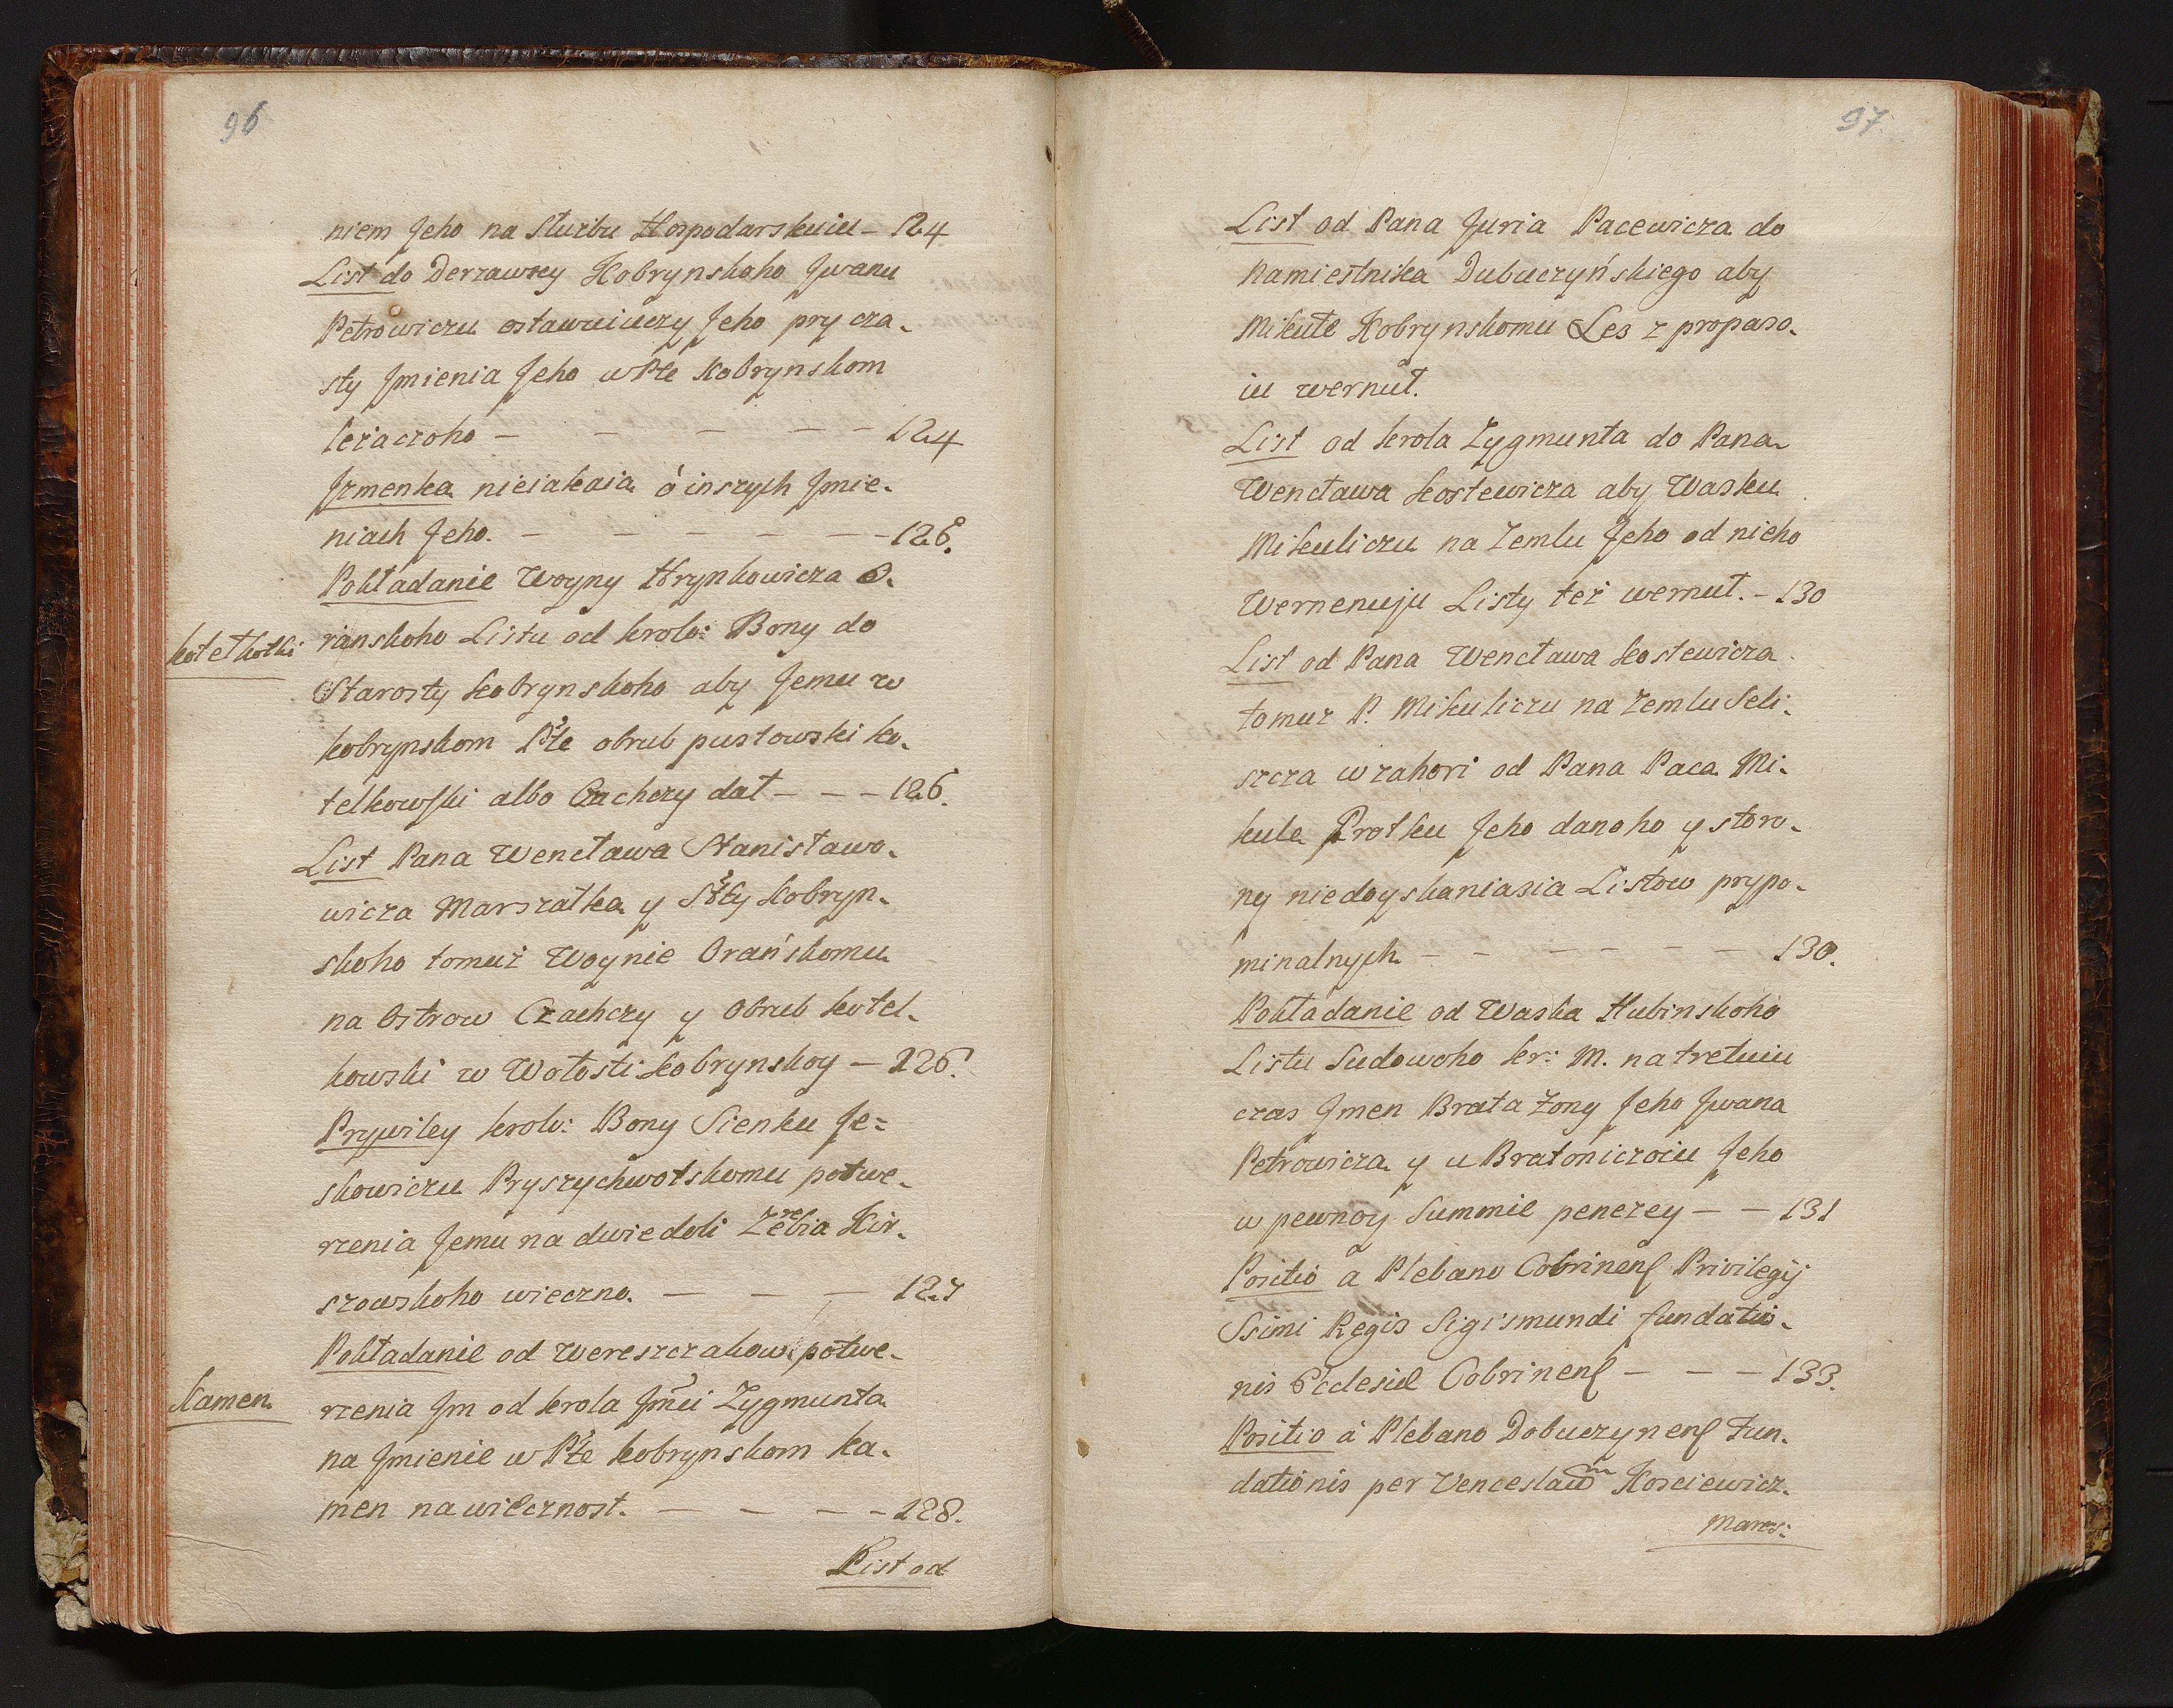 96
niem Jeho na Służbu Hospodarskuiu – 124
List do Derzawcy Kobrynskoho Jwanu
Petrowiczu ostawuiuczy Jeho pry cza-
sty Jmienia Jeho w Płe Kobrynskom
leżaczoho – – – – – 124
Jzmenka nieiakaia ó inszych Jmie-
niach Jeho. – – – – – – 126.
Pokładanie Woyny Hrynkowicza O-
kotełkotki
rianskoho Listu od krolo: Bony do
Starosty kobrynskoho aby Jemu w
kobrynskom Płe obrub pustowski ko-
telkowski albo Czachczy dał – – – 126.
List Pana Wencława Stanisławo-
wicza Marszałka y Stty Kobryn-
skoho tomuż Woynie Orańskomu
na Ostrow Czachczy y Obrub kotel-
kowski w Wołosti kobrynskoy – 126.
Prywiley krolo: Bony Sienku Je-
skowiczu Pryszychwotskomu potwe-
rzenia Jemu na dwie doli Zerebia Kir-
szowskoho wieczno. – – – 127
Pokładanie od Wereszczakow potwe-
Kamen.
rzenia Jm od krola Jmci Zygmunta
na Jmienie w Płe kobrynskom Ka-
men na wiecznost. – – – – 128.
List od
97.
List od Pana Juria Pacewicza do
Namiestnika Dubuczyńskiego aby
Mikule Kobrynskomu Les z propaso-
iu wernuł.
List od krola Zygmunta do Pana
Wencława Kostewicza aby Wasku
Mikuliczu na Zemlu Jeho od nieho
Wernenuju Listy też wernuł. – 130
List od Pana Wencława Kostewicza
tomuz P. Mikuliczu na Zemlu Seli-
szcza w zahori od Pana Paca Mi-
kule Protku Jeho danoho y storo-
ny niedoyskaniasia Listow prypo-
minalnych – – – – – – 130.
Pokładanie od Waska Hubinskoho
Listu Sudowoho kr: M. na tretuiu
czas Jmen Brata żony Jeho Jwana
Petrowicza y u Bratoniczoiu Jeho
w pewnoy Summie penezey – – 131
Positio a Plebano Cobrinenſ Privilegij
Ssimi Regis Sigismundi fundatio-
nis Ecclesiae Cobrinenſ – – – 133.
Positio à Plebano Dobuczynenſ Fun-
dationis per Venceslaum Kosciewicz.
Mars: